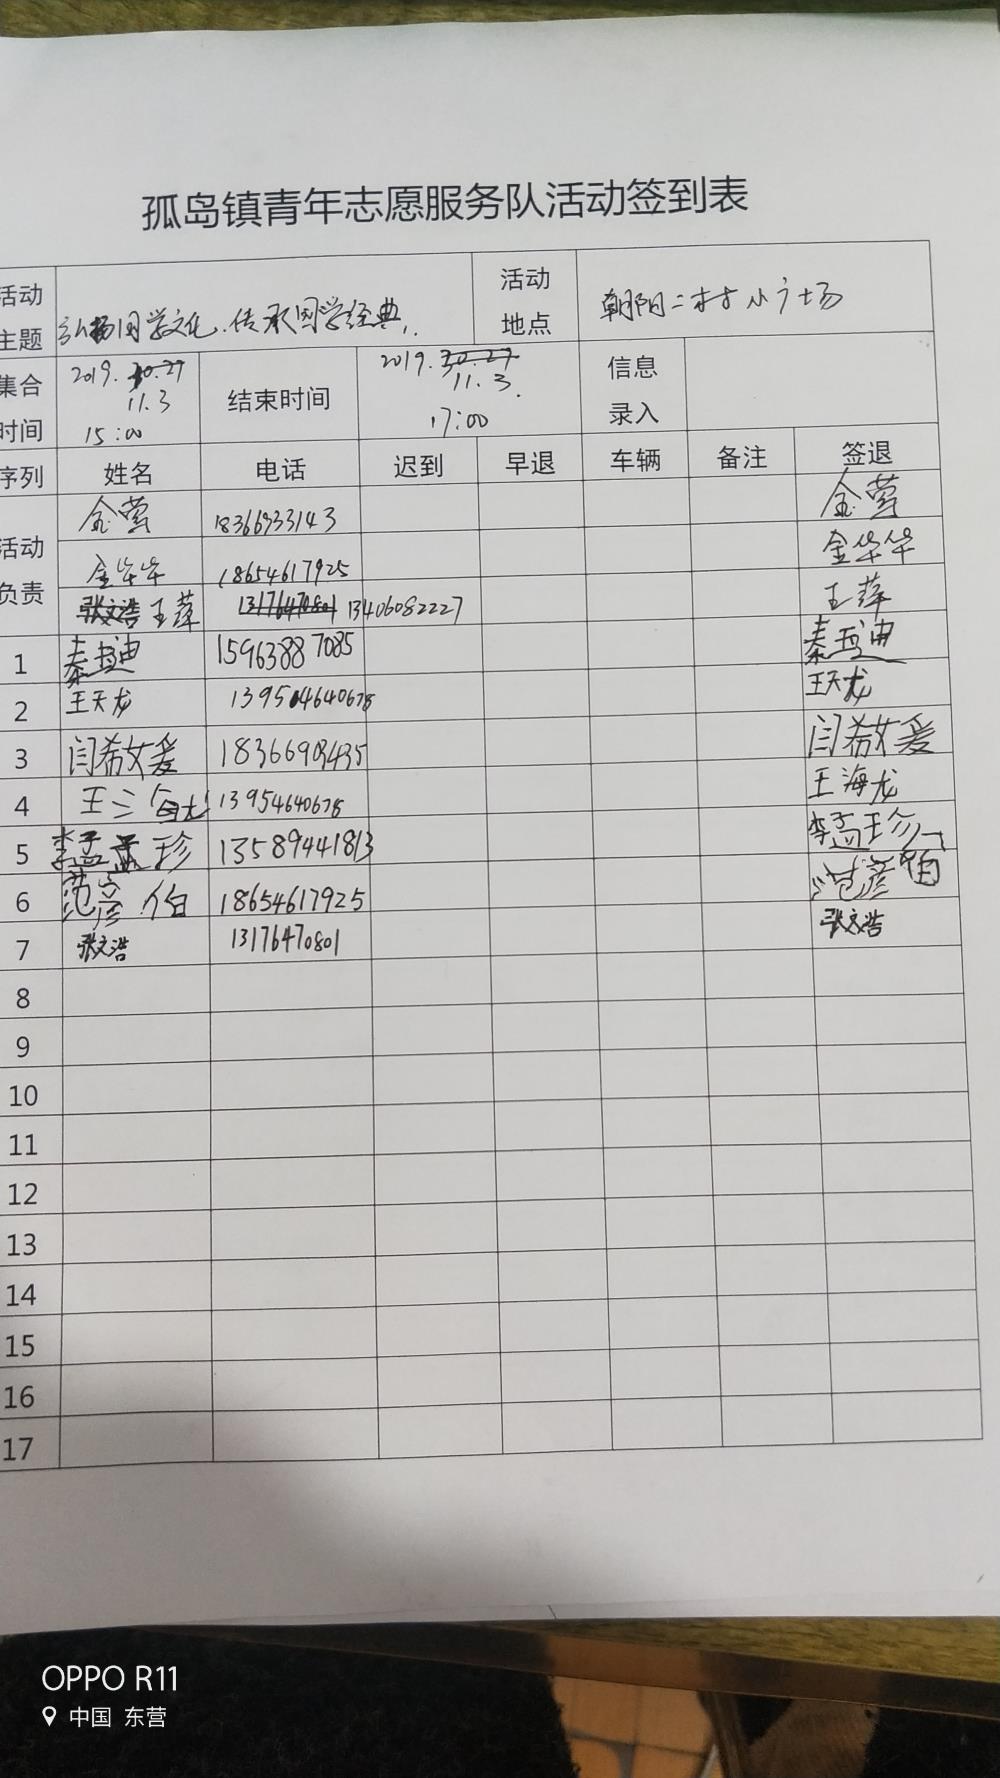 孤岛镇青年志愿服务队活动签到表
活动主题 弘扬国学文化、传承国学经典. 活动地点 朝阳二村小广场
集合时间 2019. 11.3 15:00 结束时间 2019. 11.3. 17:00 信息录入
序列 姓名 电话 迟到 早退 车辆 备注 签退
活动负责 金莺 18366933143 金莺
金华华 18654617925 金华华
张文浩 王萍 13176470801 13406082227 王萍
1 15963887085
2 王天龙 13954640678 王天龙
3 闫希文爱 18366903435 闫希文爱
4 王海龙 13954640678 王海龙
5 李孟珍 13589441813 李孟珍
6 范彦伯 18654617925 范彦伯
7 张文浩 13176470801 张文浩
8
9
10
11
12
13
14
15
16
17
OPPO R11
中国 东营